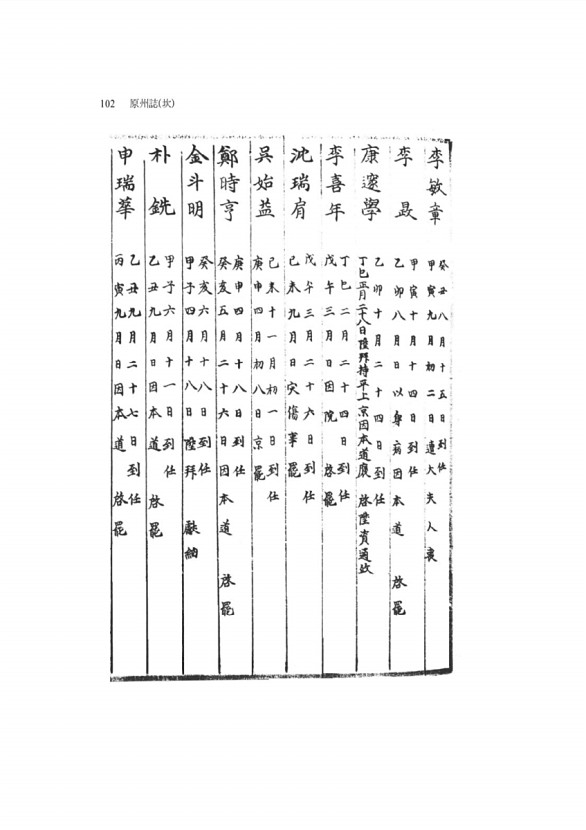 102 原州誌(坎)
李敏章
癸丑八月十五日到任
甲寅九月初二日遭大夫人喪
李
甲寅十月十四日到任
乙卯八月日以身病因本道 啓罷
康邃學
乙卯十月二十四日到任
丁巳正月二十八日陞拜持平上京因本道 啓陞資通政
李喜年
丁巳二月二十四日到任
戊午三月日因院 啓罷
沈瑞肩
戊午三月二十六日到任
己未九月日灾傷事罷
吳始益
己未十一月初一日到任
庚申四月初八日京罷
鄭時亨
庚申四月十八日到任
癸亥五月二十六日因本道 啓罷
金斗明
癸亥六月十八日到任
甲子四月十八日陞拜 獻納
朴銑
甲子六月十一日到任
乙丑九月日因本道 啓罷
申瑞華
乙丑九月二十七日到任
丙寅九月日因本道 啓罷